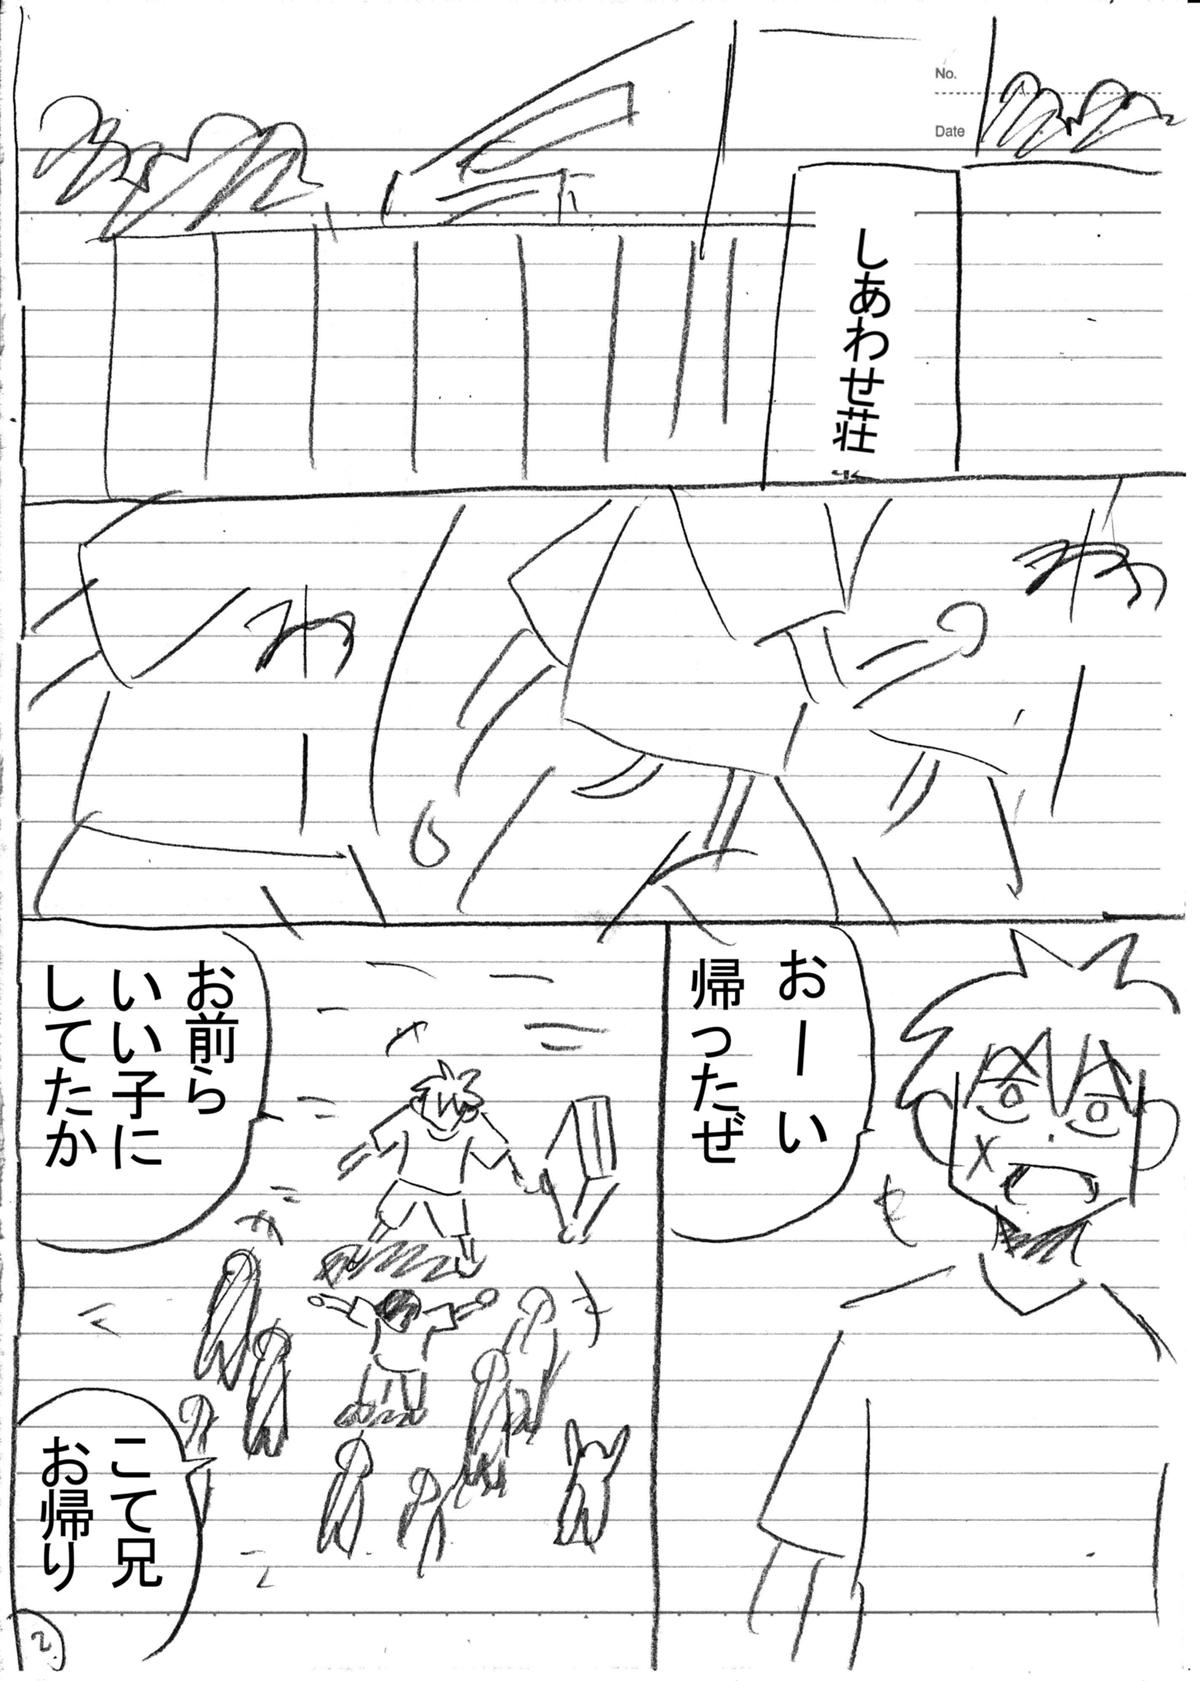 No.
Date
しあわせ荘
わ
わ
おーい
帰ったぜ
お前ら
いい子に
してたか
こて兄
お帰り
2